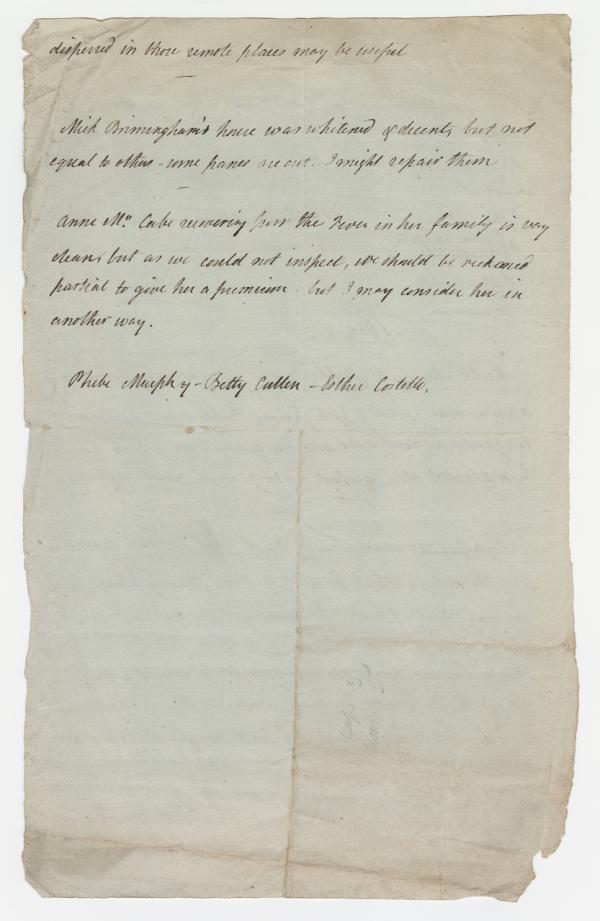 dispersed in those remote places may be useful
Mick Birmingham's house was whitened & decent, but not
equal to others - some panes are out. I might repair them
Anne Mc. Cabe recovering from the Fever in her family is very
clean, but as we could not inspect, we should be reckoned
partial to give her a premium - but I may consider her in
another way.
Phebe Murphy - Betty Cullen - Esther Costello.